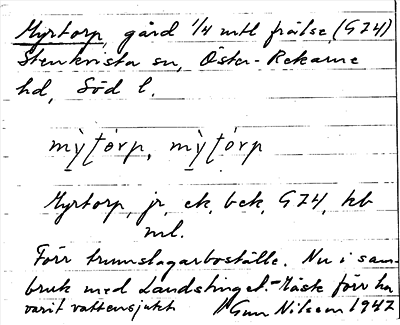 Myrtorp, gård 1/4 mtl frälse, (GZ4)
Stenkvista sn, Öster-Rekarne
hd, Söd l.
mỳțórp, mỳțórp
Myrtorp, jr, ek, bek, GZ4, kb
ml.
Förr trumslagarboställe. Nu i sam-
bruk med Landstinget. - Måste förr ha
varit vattensjukt Gun Nilsson 1947